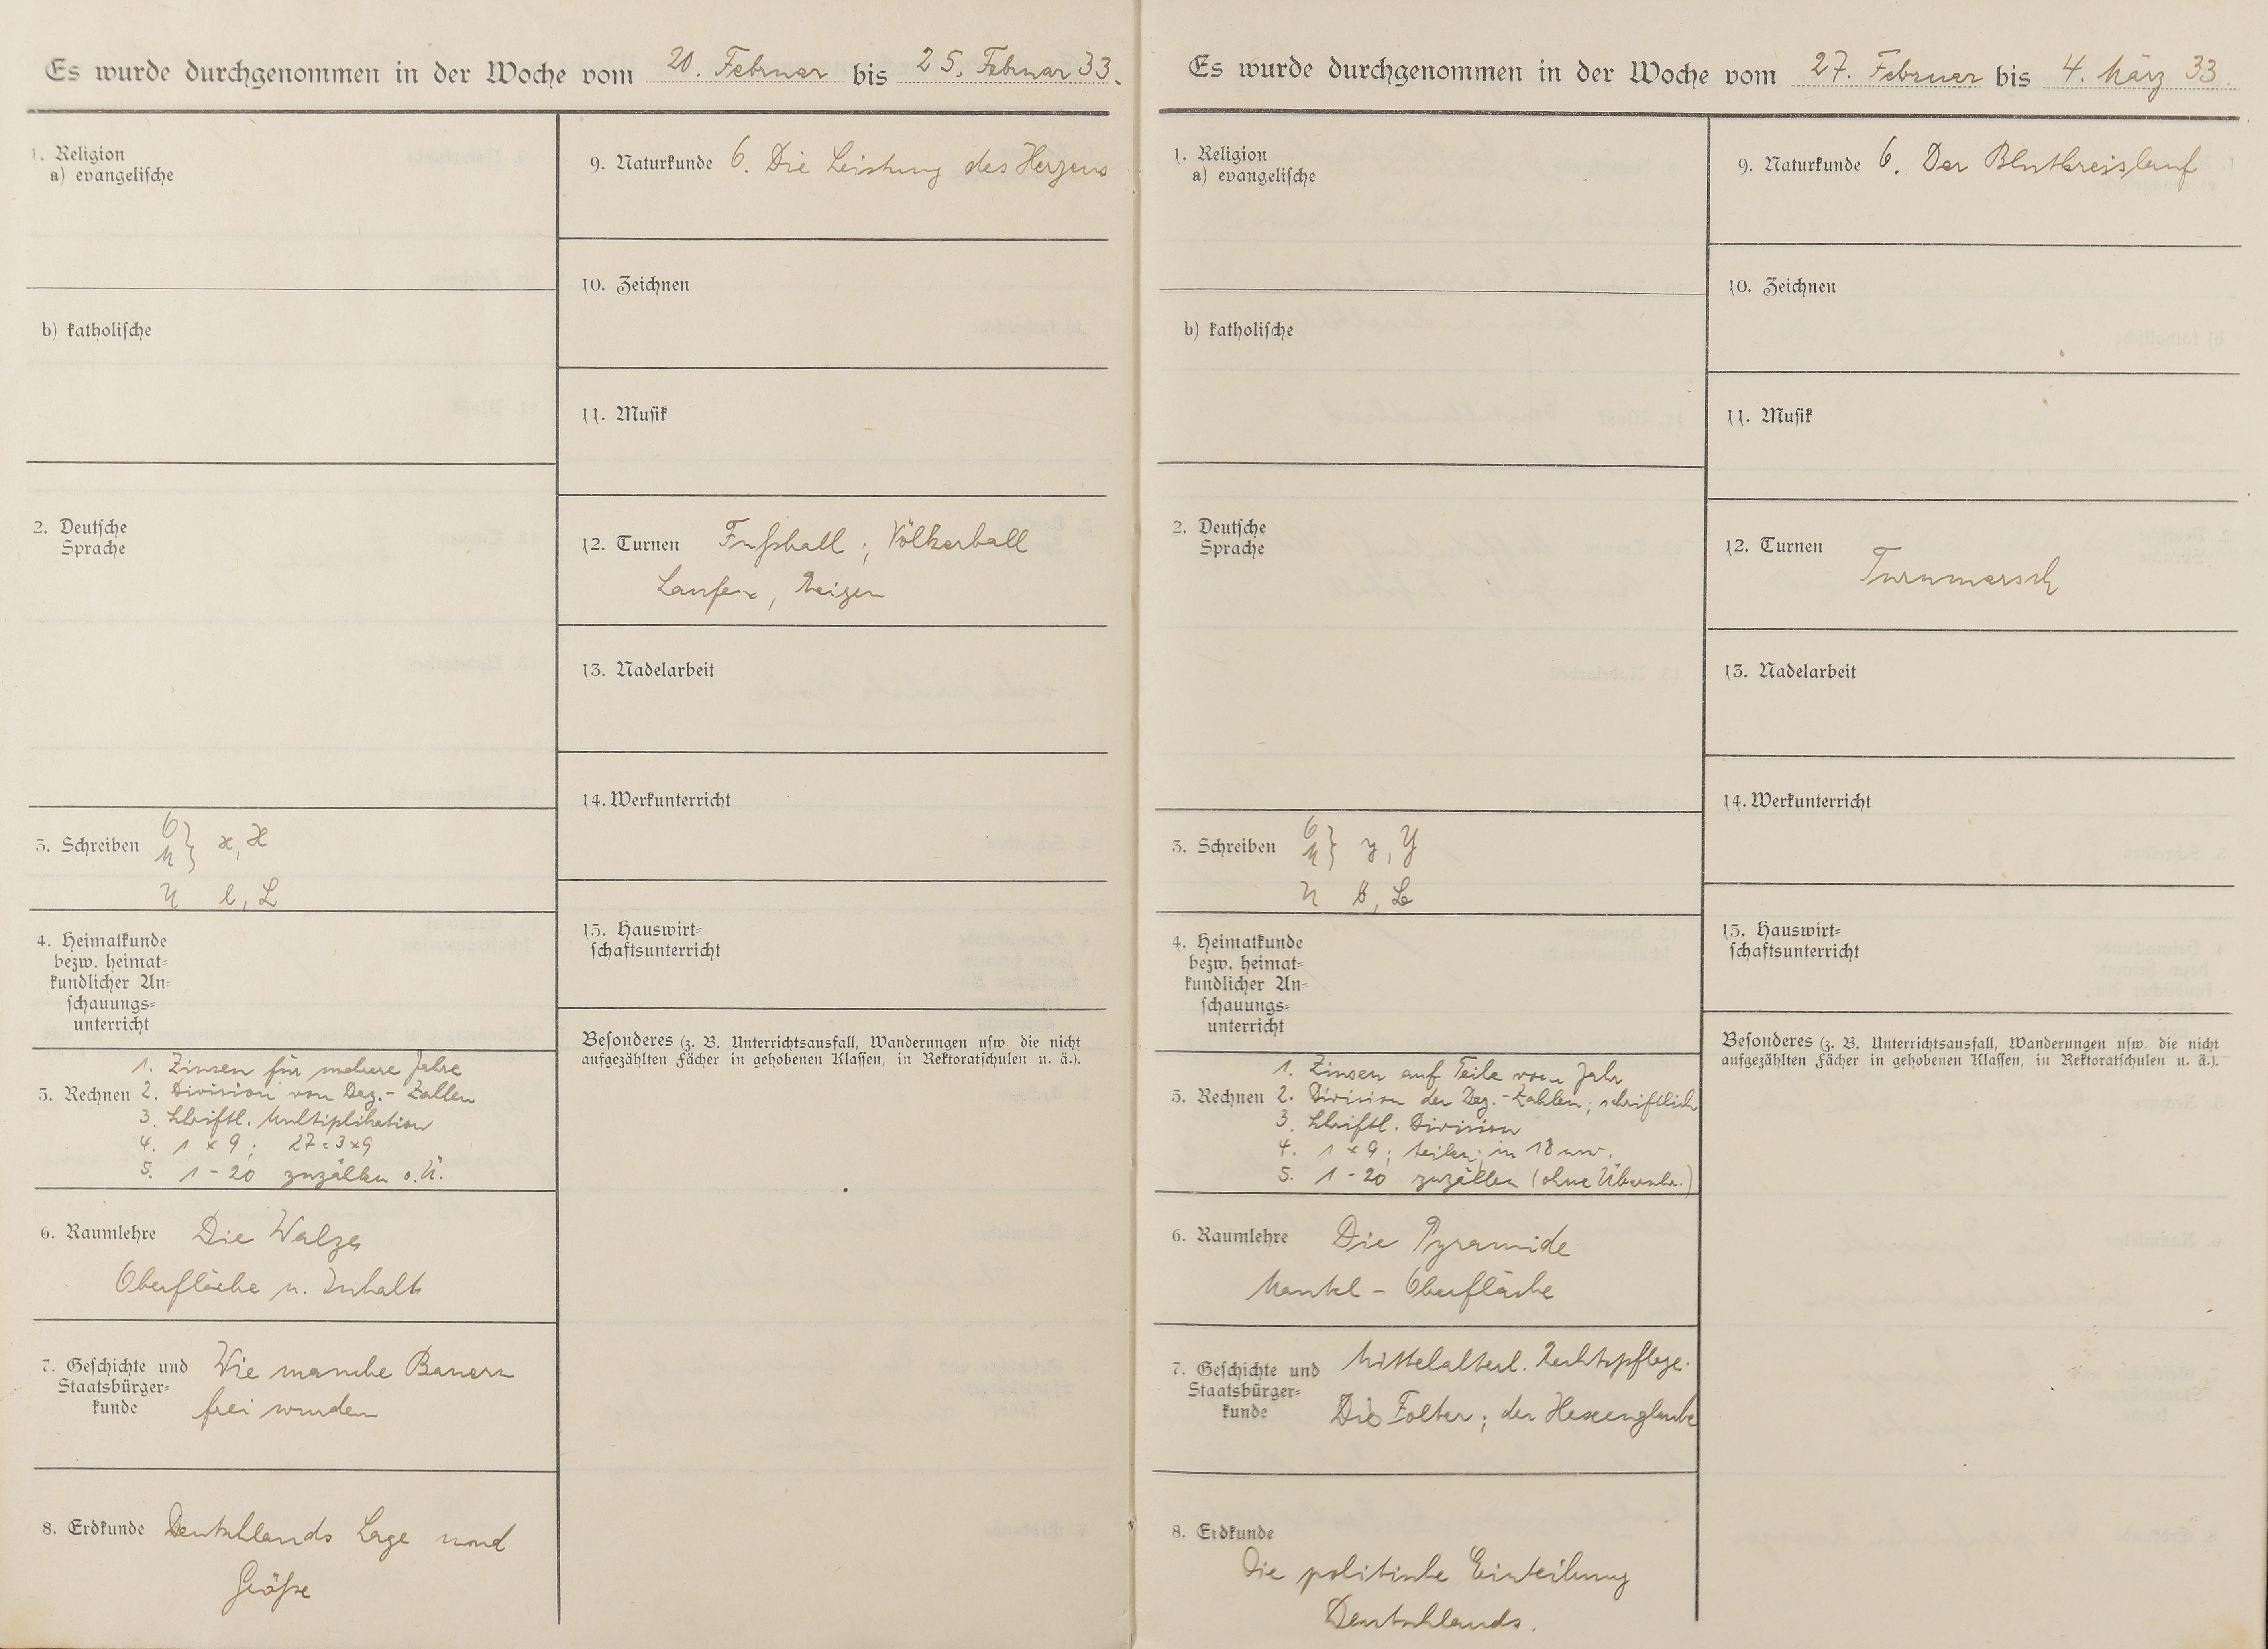 Es wurde durchgenommen in der Woche vom 20. Februar bis 25. Februar 33.
1. Religion
a) evangelische
b) katholische
2. Deutsche
Sprache
3. Schreiben O M } x, X
U l, L
4. Heimatkunde
bezw. heimat=
kundlicher An=
schauungs=
unterricht
1. Zinsen für mehrere Jahre
5. Rechnen 2. Division von Dez.-Zahlen
3. Schriftl. Multiplikation
4. 1 x 9; 27 = 3 x 9
5. 1 - 20 zuzählen o. Ü.
6. Raumlehre Die Walze
Oberfläche u. Inhalt
7. Geschichte und Wie manche Bauern
Staatsbürger= frei wurden
kunde
8. Erdkunde Deutschlands Lage und
Größe
9. Naturkunde O. Die Leistung des Herzens
10. Zeichnen
11. Musik
12. Turnen Fußball; Völkerball
Laufen, Reigen
13. Nadelarbeit
14. Werkunterricht
15. Hauswirt=
schaftsunterricht
Besonderes (z. B. Unterrichtsausfall, Wanderungen usw. die nicht
aufgezählten Fächer in gehobenen Klassen, in Rektoratschulen u. ä.).
Es wurde durchgenommen in der Woche vom 27. Februar bis 4. März 33.
1. Religion
a) evangelische
b) katholische
2. Deutsche
Sprache
3. Schreiben O M } y, Y
U
4. Heimatkunde
bezw. heimat=
kundlicher An=
schauungs=
unterricht
1. Zinsen auf Teile vom Jahr
5. Rechnen 2. Division der Dez.-Zahlen; schriftlich
3. Schriftl. Division
4. 1 x 9; teilen; in 18 usw.
5. 1 - 20 zuzählen (ohne Überschr.)
6. Raumlehre Die Pyramide
Mantel - Oberfläche
7. Geschichte und Mittelalterl. Rechtspflege.
Staatsbürger= Die Folter; der Hexenglaube
kunde
8. Erdkunde
Die politische Einteilung
Deutschlands.
9. Naturkunde O. Der Blutkreislauf
10. Zeichnen
11. Musik
12. Turnen
Turnmarsch
13. Nadelarbeit
14. Werkunterricht
15. Hauswirt=
schaftsunterricht
Besonderes (z. B. Unterrichtsausfall, Wanderungen usw. die nicht
aufgezählten Fächer in gehobenen Klassen, in Rektoratschulen u. ä.).